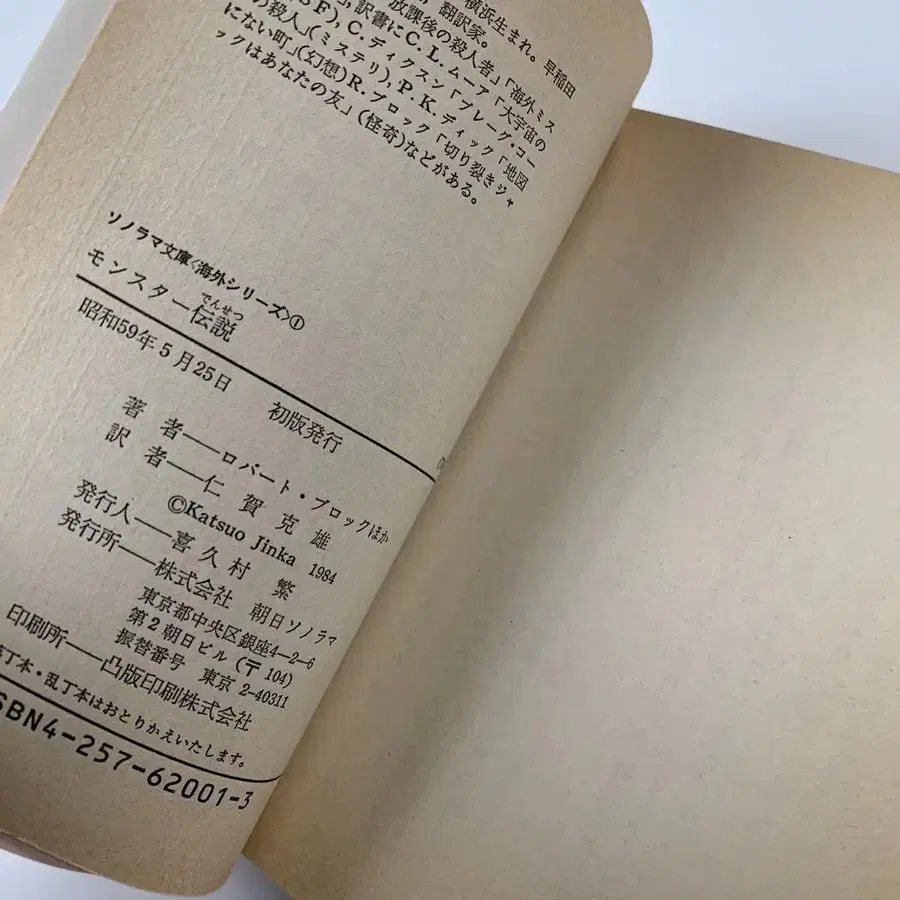 横浜生まれ。早稲田
翻訳家。
放課後の殺人者」「海外ミス
訳書にC.L.ムーア「大宇宙の
SF), C.ディクスン「プレーグ・コー
の殺人」(ミステリ), P.K.ディック「地図
にない町」(幻想)R.ブロック「切り裂きジャ
ックはあなたの友」(怪奇)などがある。
ソノラマ文庫〈海外シリーズ〉①
でんせつ
モンスター伝説
昭和59年5月25日 初版発行
著者―ロバート・ブロックほか
訳者―仁賀克雄
©Katsuo Jinka 1984
発行人―喜久村 繁
発行所―株式会社 朝日ソノラマ
東京都中央区銀座4-2-6
第2朝日ビル(〒104)
振替番号 東京2-40311
印刷所―凸版印刷株式会社
丁本・乱丁本はおとりかえいたします。
SBN4-257-62001-3